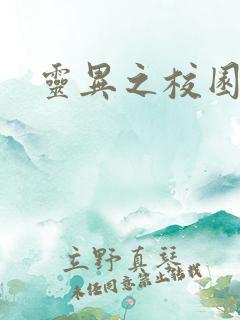 靈異之校園
立野真琴
未經同意禁止轉載